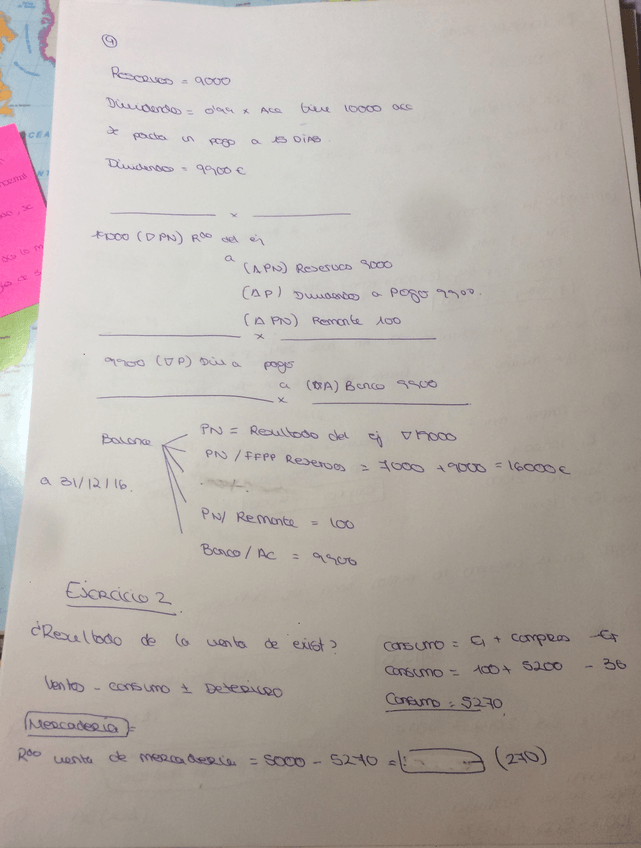 ④
Reservas = 9000
Dividendos = 0'99 x Acc tiene 10000 acc
* pacta un pago a 15 DÍAS
Dividendos = 9900 €
x
19000 (∇PN) Rdo del ej
a
(ΔPN) Reservas 9000
(ΔP) Dividendos a pago 9900.
(ΔPN) Remante 100
x
9900 (∇P) Div a pago
a (∇A) Banco 9900
x
Balance
a 31/12/16.
PN = Resultado del ej ∇19000
PN/FFPP Reservas = 7000 + 9000 = 16000 €
PN/ Remante = 100
Banco/ AC = 9900
Ejercicio 2
¿Resultado de la venta de exist?
Consumo = Ei + compras - Ef
Consumo = 100 + 5200 - 30
Ventas - consumo ± Deterioro
Consumo = 5270
Mercadería =
Rdo venta de mercadería = 5000 - 5270 = (270)